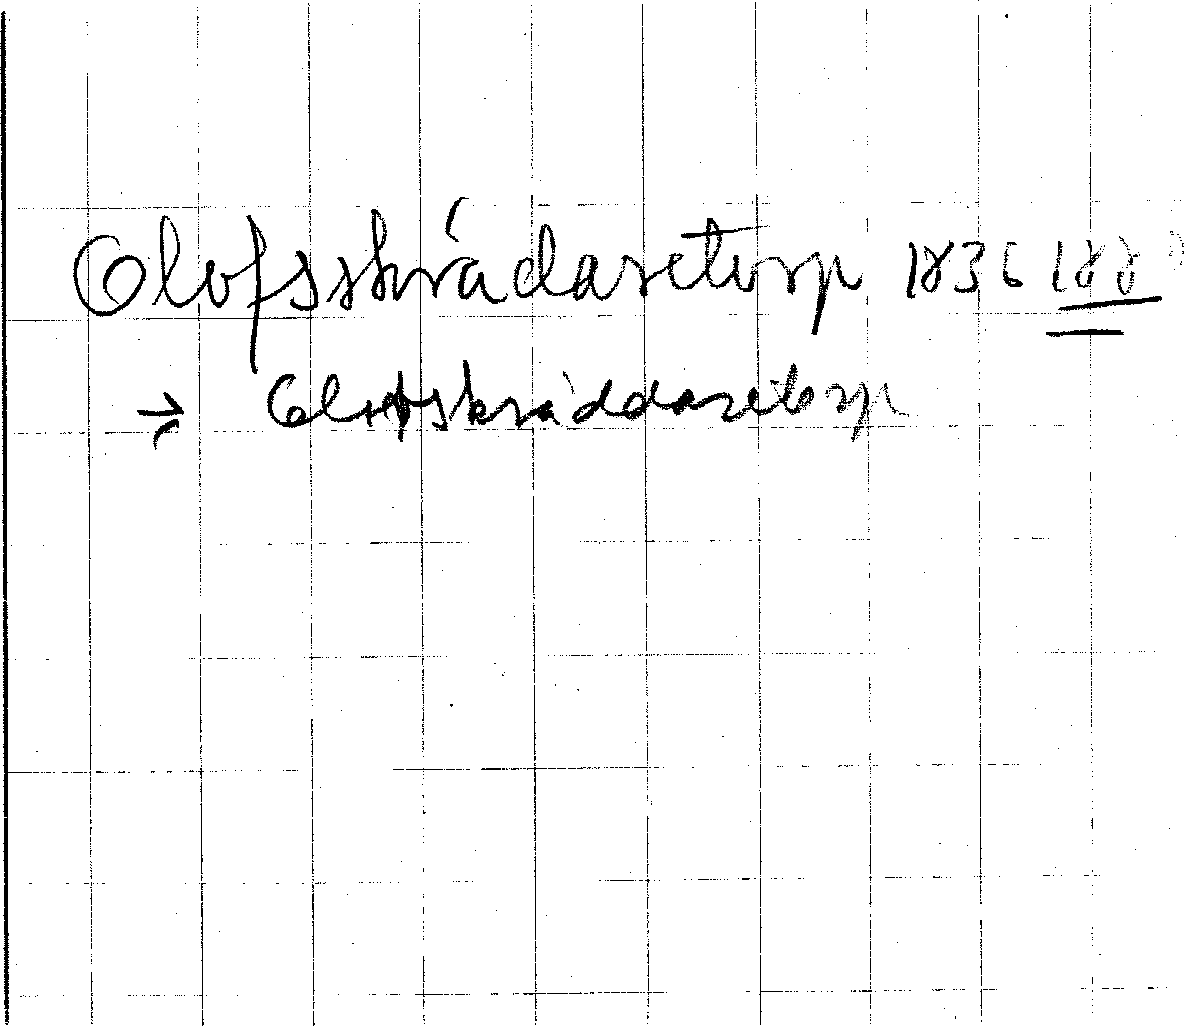 Olofsskrádaretorp 1836 188
→ Olofskràddaretorp